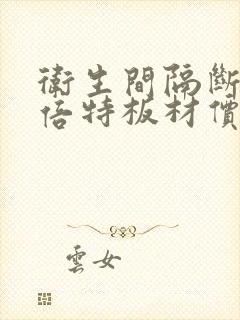 衛生間隔斷
倍特板材價
雲女